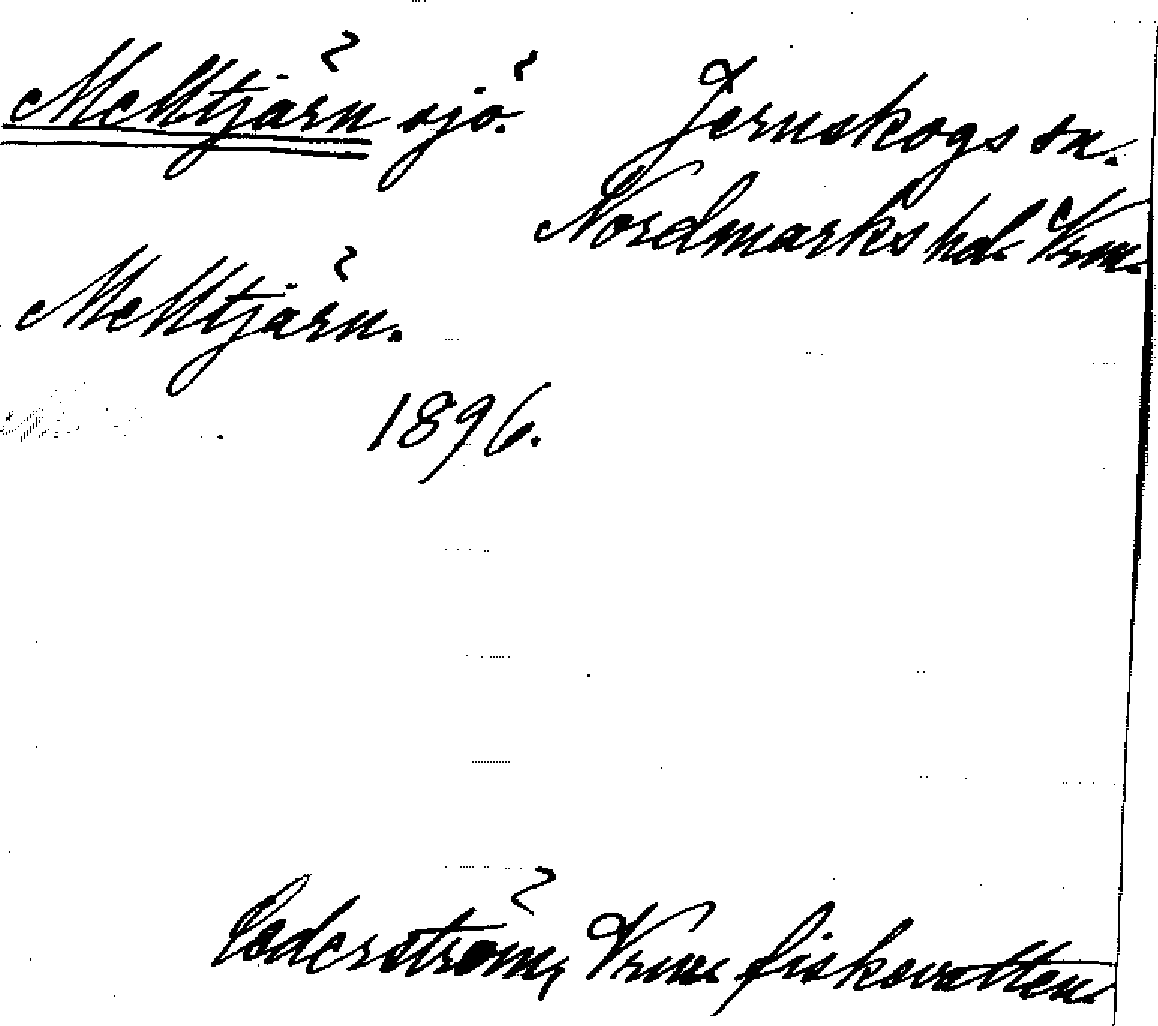 Melltjärn sjö. Jernskogs sn.
Nordmarks hd. Vrm.
Melltjärn.
1896.
Cederström, Vrm. fiskevatten.